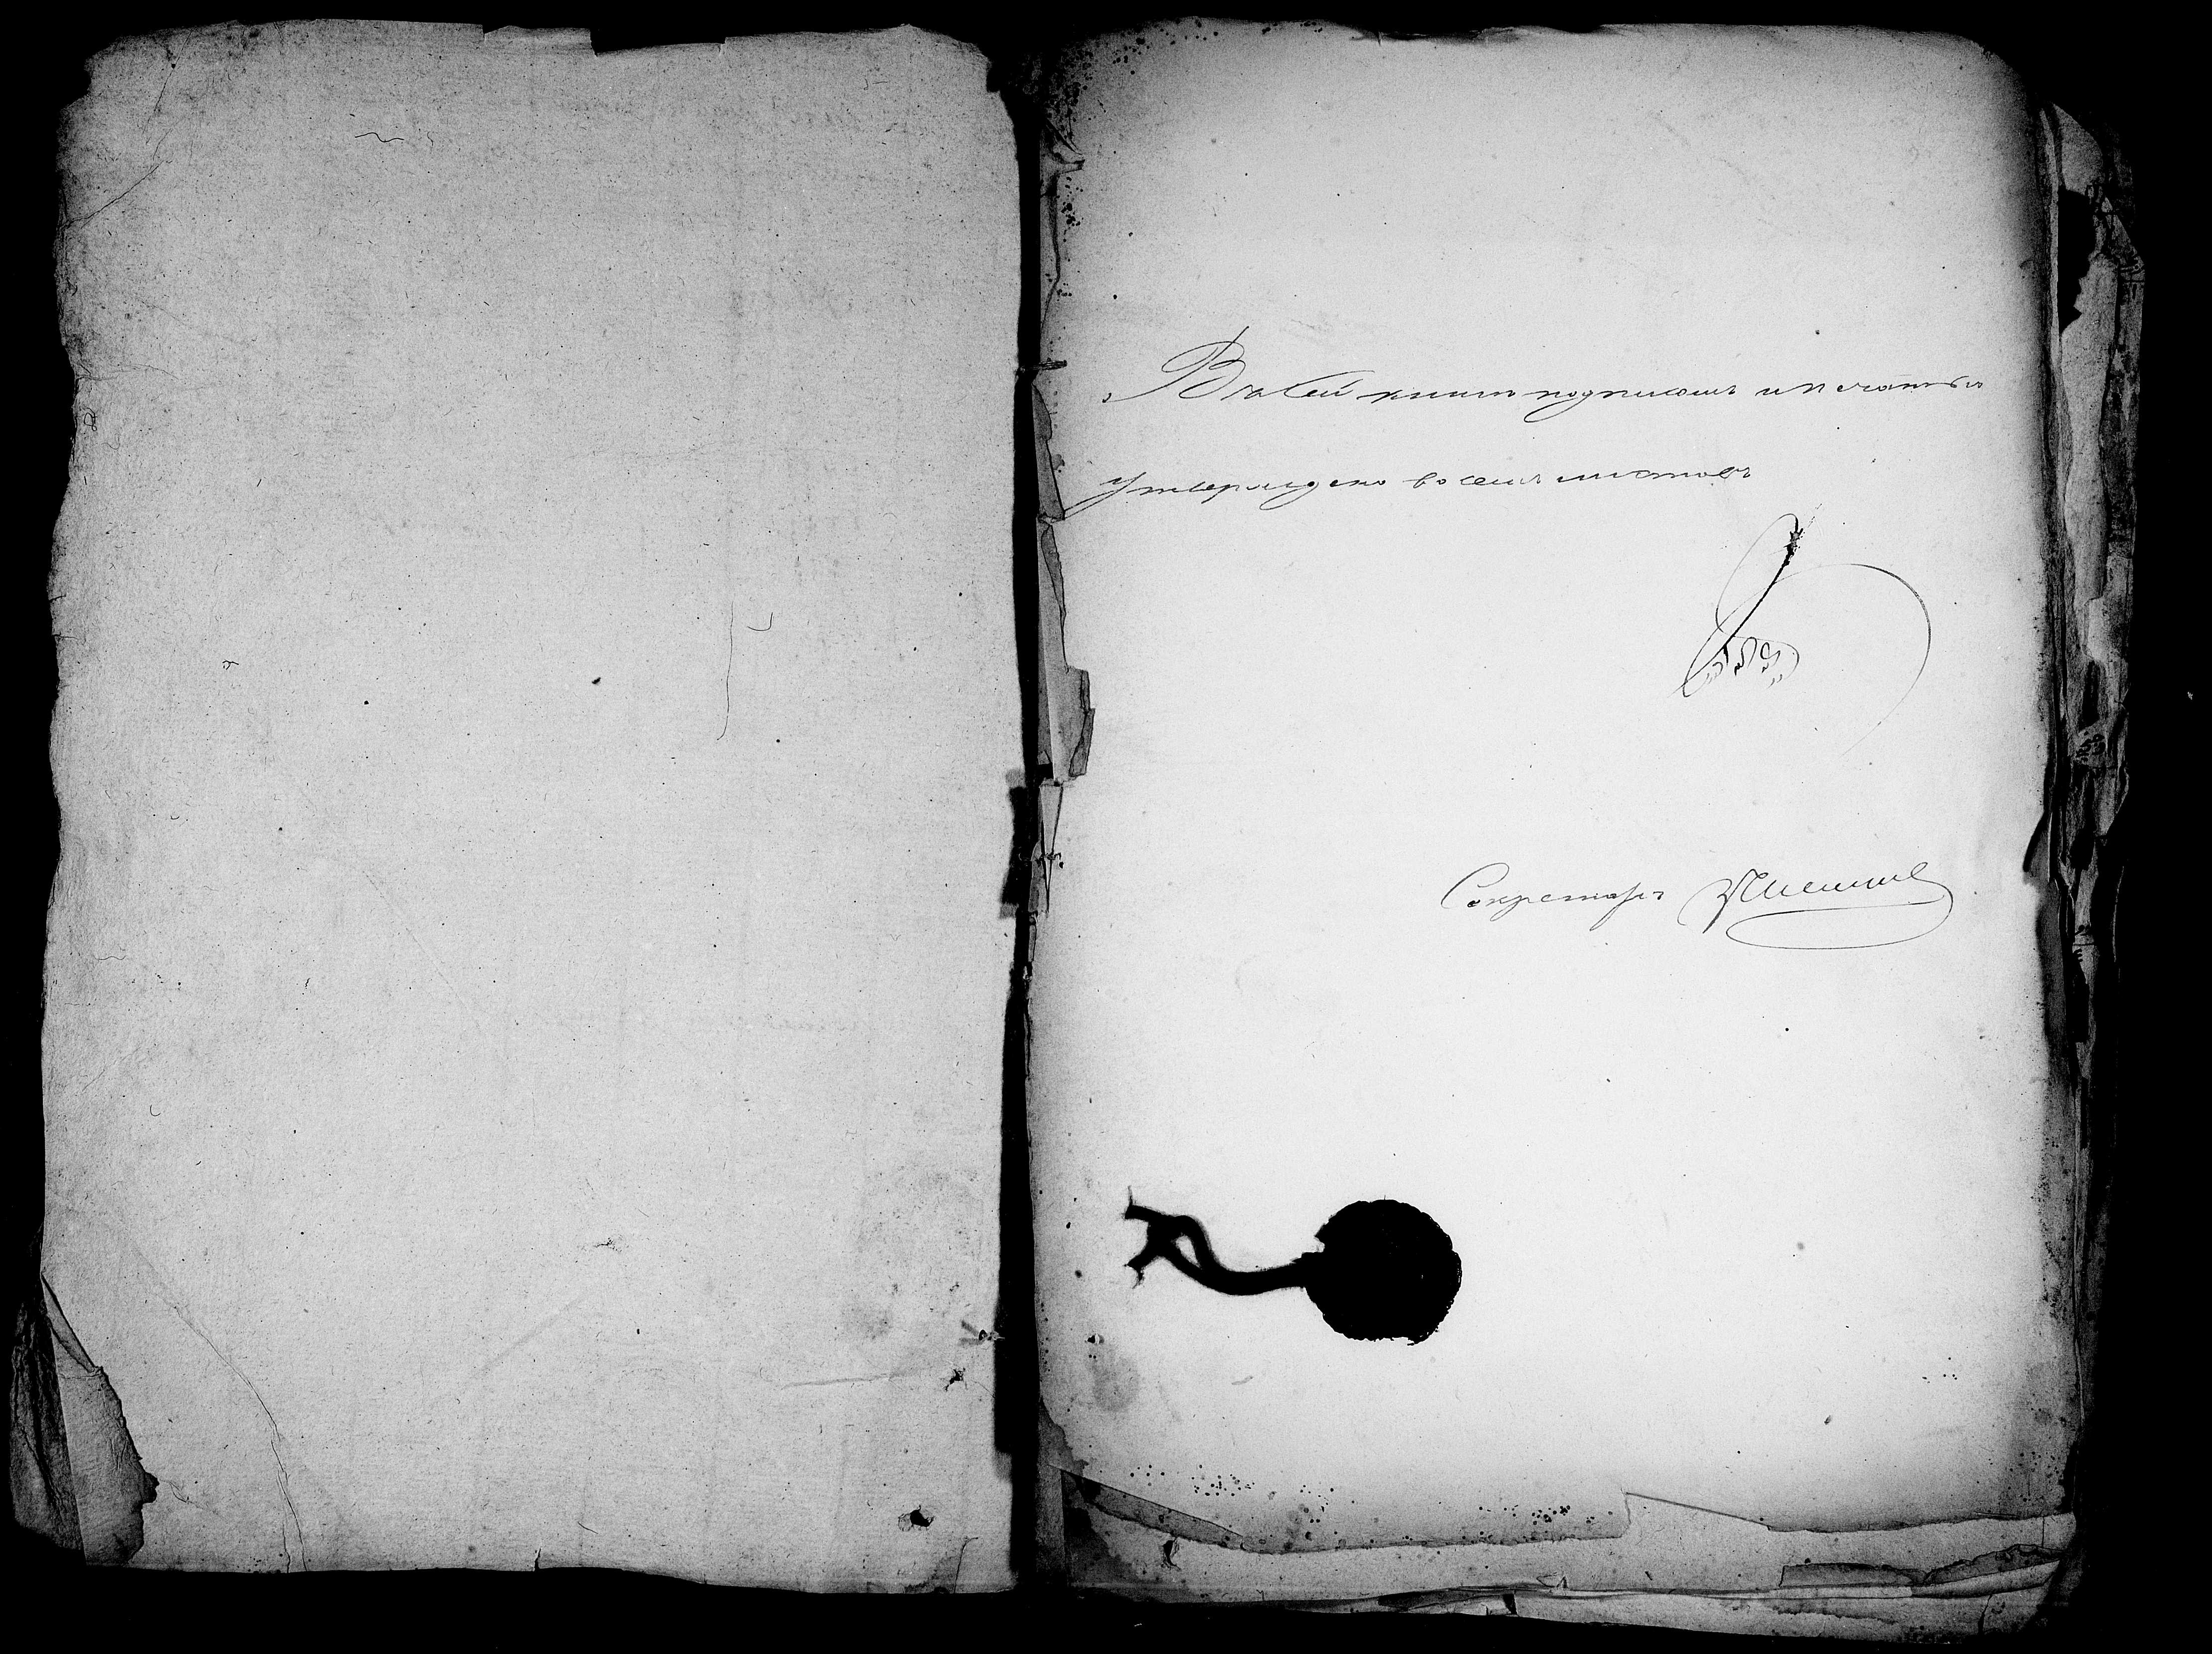 Въ сей книгѣ подписомъ и печатью
утверждено восемь листовъ
Секретарь